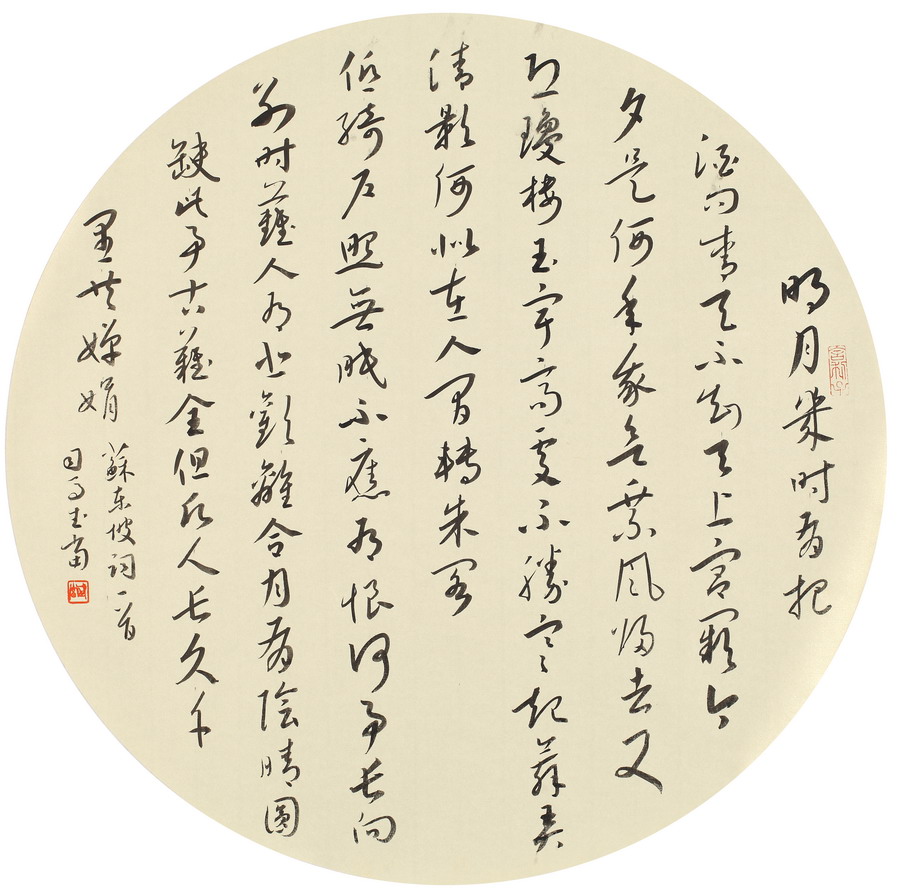 明月幾时有把
酒问青天不知天上宫闕今
夕是何年我欲乘风归去又
恐瓊楼玉宇高处不勝寒起舞弄
清影何似在人间轉朱阁
低綺户照無眠不應有恨何事长向
别时難人有悲歡離合月有陰晴圓
缺此事古難全但願人长久千
里共嬋娟
蘇东坡词一首
司马武当